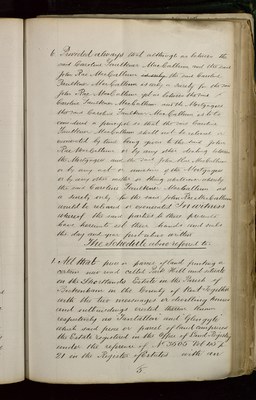 6. Provided always that although as between the
said Caroline Faulkner MacCallum and the said
John Rae MacCallum the said Caroline
Faulkner MacCallum is only a surety for the said
John Rae MacCallum yet as between the said
Caroline Faulkner MacCallum and the Mortgagee
the said Caroline Faulkner MacCallum is to be
considered a principal so that the said Caroline
Faulkner MacCallum shall not be released or
exonerated by time being given to the said John
Rae MacCallum or by any other dealing between
the Mortgagee and the said John Rae MacCallum
or by any act or omission of the Mortgagee
or by any other matter or thing whatsoever whereby
the said Caroline Faulkner MacCallum as
a surety only for the said John Rae MacCallum
would be released or exonerated In witness
whereof the said parties to these presents
have hereunto set their hands and seals
the day and year first above written
The Schedule above referred to
1. All that piece or parcel of land fronting a
certain new road called Park Hill and situate
on the Shortlands Estate in the Parish of
Beckenham in the County of Kent together
with the two messuages or dwelling houses
and outbuildings erected thereon known
respectively as and
which said piece or parcel of land comprises
the Estate registered in the Office of Land Registry
under the reference of No.
21 in the Register of Estates with an
5